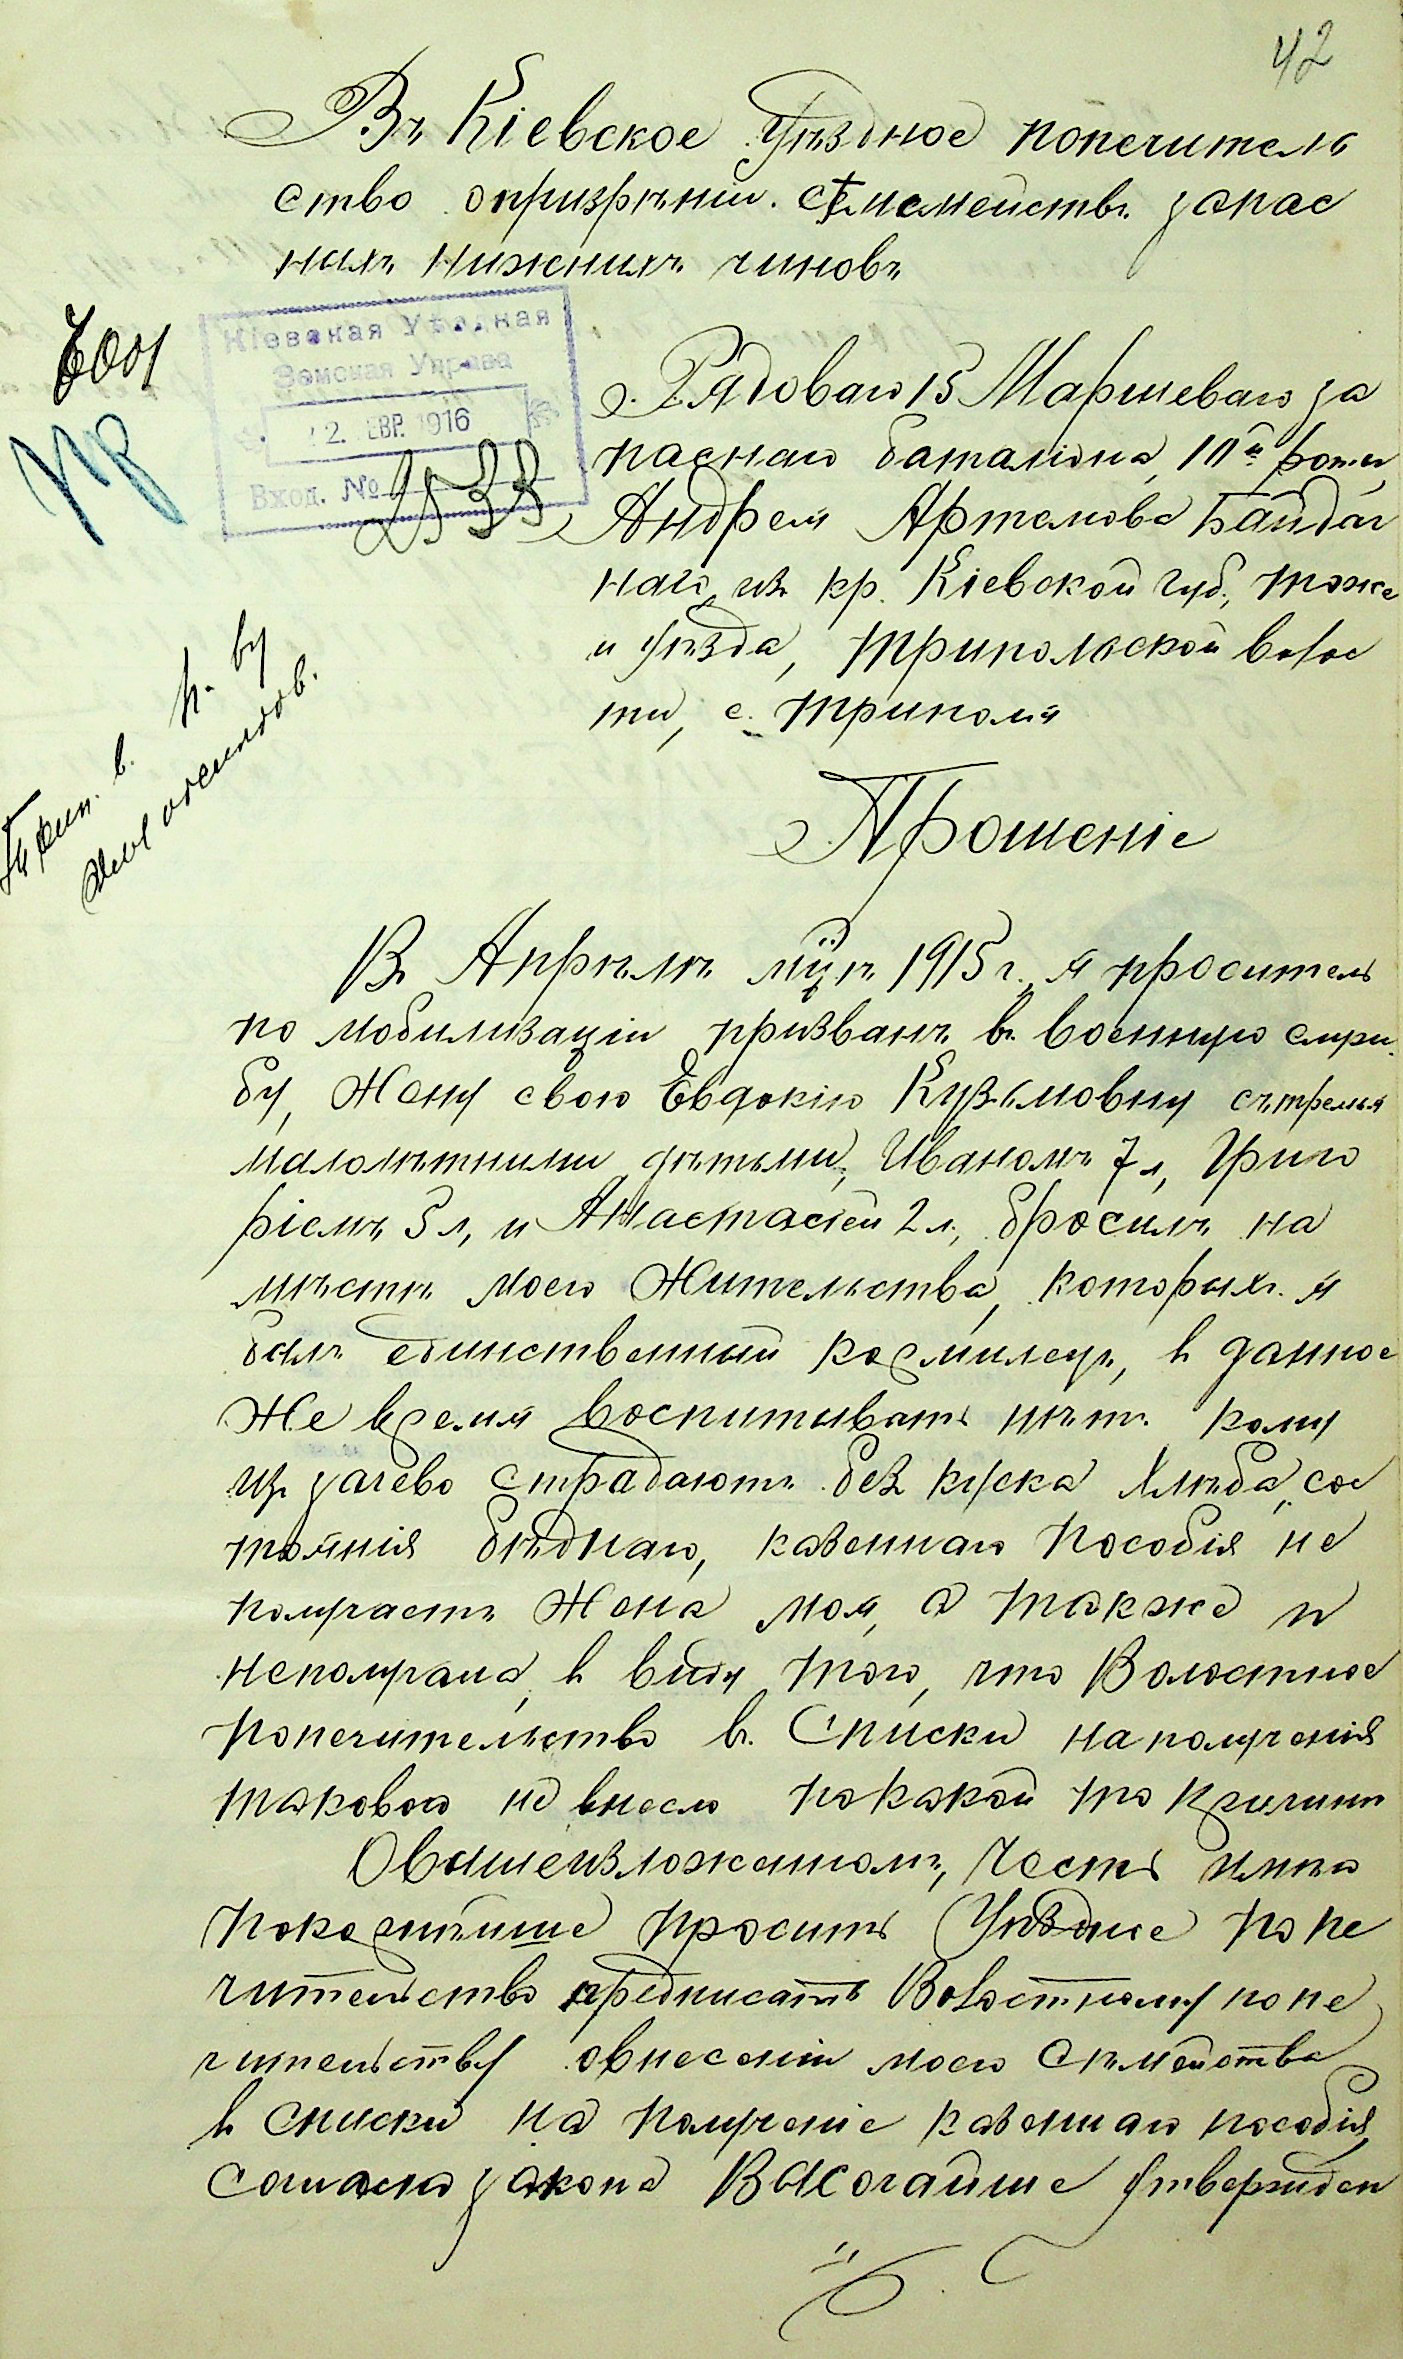 42
Въ Кіевское Уѣздное попечитель
ство опризрѣніи семемействъ запас
ныхъ нижнихъ чиновъ
Кіевская Уѣздная
Земская Управа
2. ЕВР. 1916
Вход. №
2533
Рядоваго 15 Маршеваго за
паснаго баталіона, 10й роты,
Андрея Артемова Байдач
наго, изъ кр. Кіевской губ., тоже
и уѣзда, Трипольской волос
ти, с. Триполя
Трип. в.
Прошеніе
Въ Апрѣлѣ м̃цѣ 1915 г., я проситель
по мобилизаціи призванъ въ военную служ
бу, Жену свою Евдокію Кузьмовну сътремья
малолѣтними дѣтьми, Иваномъ 7 л, Григо
ріемъ 5 л, и Анастасіей 2 л, бросилъ на
мѣстѣ моего Жительства, которыхъ я
былъ единственный кормилецъ, в данное
Же время воспитывать нѣтъ кому
изъ зачево страдаютъ без куска Хлѣба, сос
тоянія бѣднаго, казеннаго пособія не
получаетъ Жена моя, а также и
неполучала, в виду того, что Волостное
попечительство въ Списки на полученія
таковаго не внесло по какой то причинѣ
Овышеизложенномъ, Честь имѣю
покорнѣйше просить Уѣздное попе
чительство предписать Волостному попе
чительству овнесеніи моего Сѣмейства
в списки на полученіе казеннаго пособія,
согласно закона Высочайше утвержден